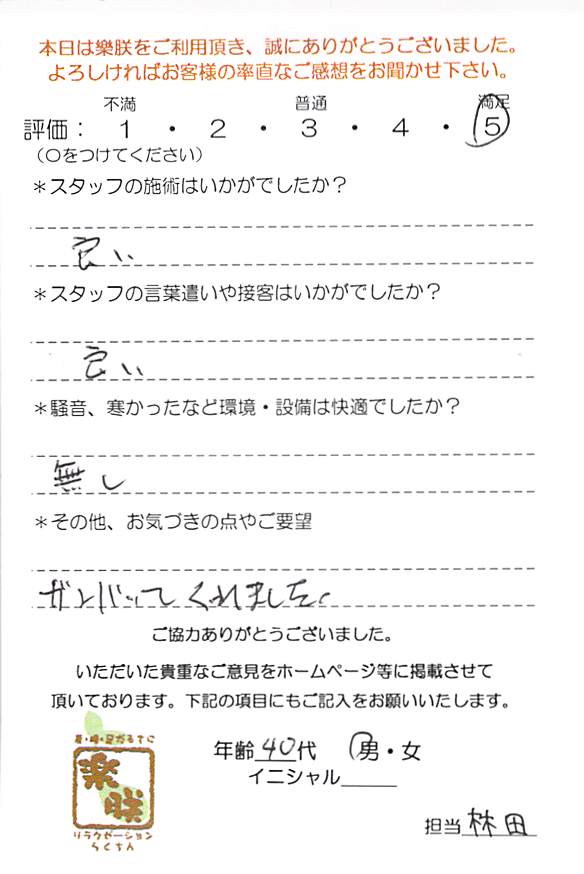 本日は樂朕をご利用頂き、誠にありがとうございました。
よろしければお客様の率直なご感想をお聞かせ下さい。
不満 普通 満足
評価： 1 ・ 2 ・ 3 ・ 4 ・ 5
（○をつけてください）
＊スタッフの施術はいかがでしたか？
良い
＊スタッフの言葉遣いや接客はいかがでしたか？
良い
＊騒音、寒かったなど環境・設備は快適でしたか？
無し
＊その他、お気づきの点やご要望
ガンバッてくれました。
ご協力ありがとうございました。
いただいた貴重なご意見をホームページ等に掲載させて
頂いております。下記の項目にもご記入をお願いいたします。
年齢 40代 男・女
イニシャル
樂朕
リラクゼーション
らくちん
担当 林田